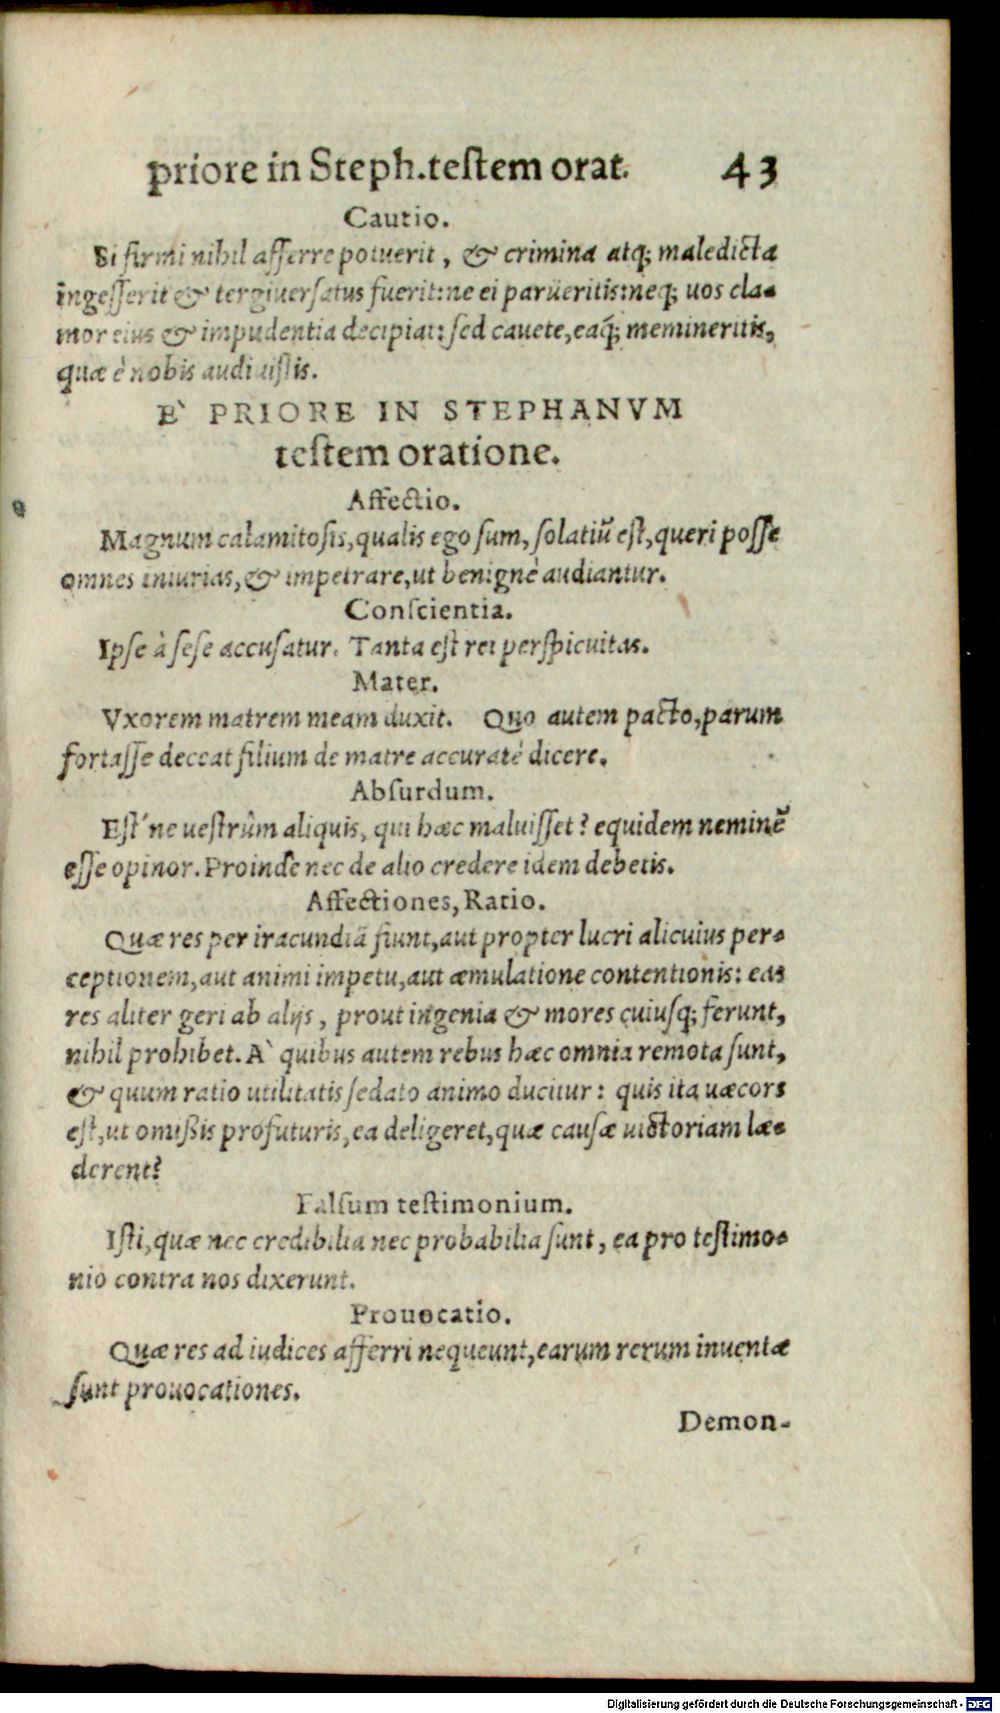 priore in Steph.testem orat. 43
Cautio.
Si firmi nihil afferre potuerit, & crimina atq; maledicta
ingesserit & tergiuersatus fuerit: ne ei parueritis: neq; uos cla-
mor eius & impudentia decipiat: sed cauete, eaq́; memineritis,
quæ è nobis audiuistis.
E` PRIORE IN STEPHANVM
testem oratione.
Affectio.
Magnum calamitosis, qualis ego sum, solatiũ est, queri posse
omnes iniurias, & impetrare, ut benignè audiantur.
Conscientia.
Ipse à sese accusatur. Tanta est rei perspicuitas.
Mater.
Vxorem matrem meam duxit. Quo autem pacto, parum
fortasse deceat filium de matre accuratè dicere.
Absurdum.
Est´ne uestrûm aliquis, qui hæc maluisset? equidem neminẽ
esse opinor. Proinde nec de alio credere idem debetis.
Affectiones, Ratio.
Quæ res per iracundiã fiunt, aut propter lucri alicuius per-
ceptionem, aut animi impetu, aut æmulatione contentionis: eas
res aliter geri ab alijs, prout ingenia & mores cuiusq; ferunt,
nihil prohibet. A` quibus autem rebus hæc omnia remota sunt,
& quum ratio utilitatis sedato animo ducitur: quis ita uæcors
est, ut omißis profuturis, ea deligeret, quæ causæ uictoriam læ-
derent?
Falsum testimonium.
Isti, quæ nec credibilia nec probabilia sunt, ea pro testimo-
nio contra nos dixerunt.
Prouocatio.
Quæ res ad iudices afferri nequeunt, earum rerum inuentæ
sunt prouocationes.
Demon-
Digitalisierung gefördert durch die Deutsche Forschungsgemeinschaft - DFG